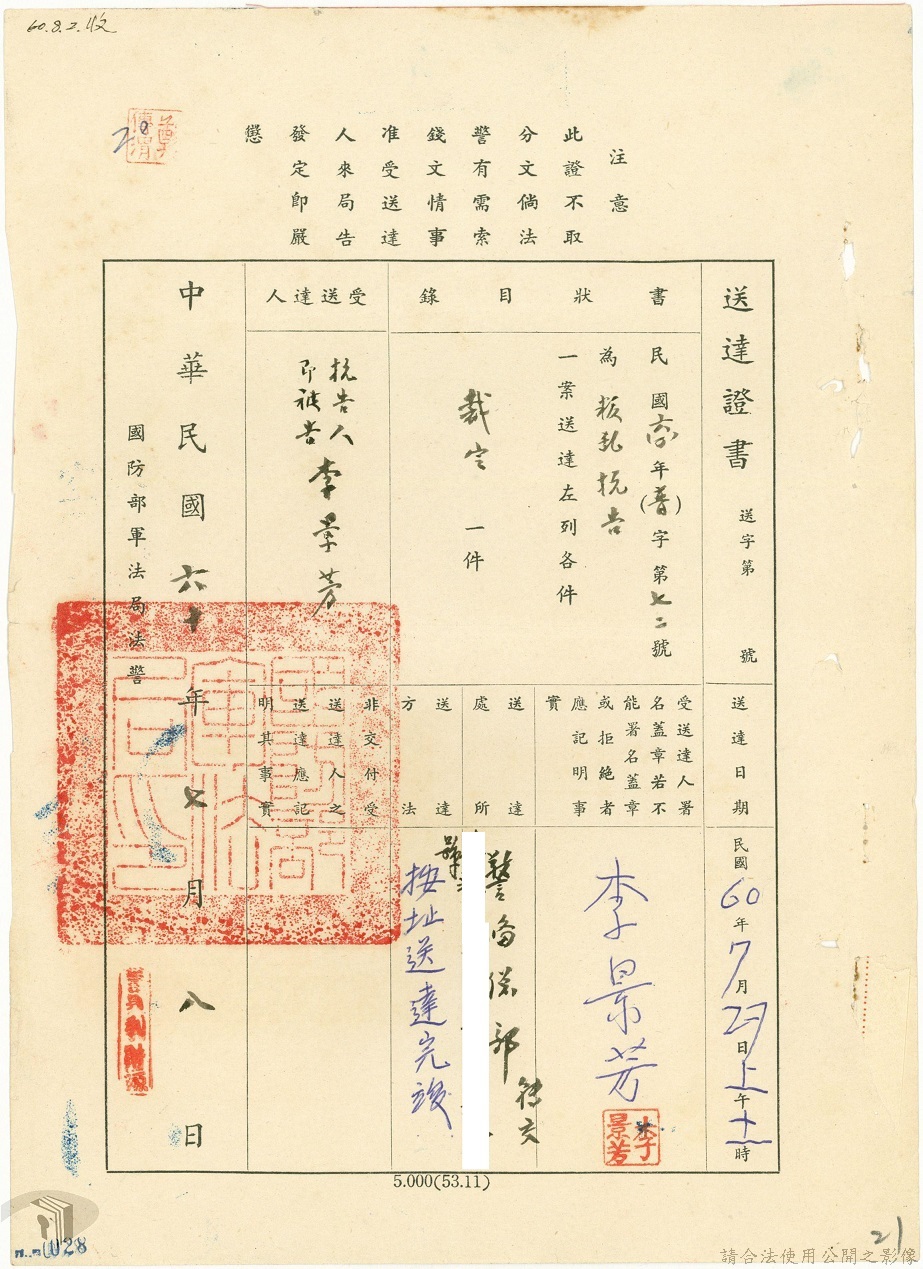 60.8.2.收
注意
此證不取
分文倘法
警有需索
錢文情事
准受送達
人來局告
發定即嚴
懲
送達證書 送字第 號
書狀目錄
民國六十年(普)字第七二號
為叛乱抗告
一案送達左列各件
裁定一件
受送達人
抗告人
即被告
李景芳
送達日期
民國60年7月27日上午十一時
受送達人署
名蓋章若不
能署名蓋章
或拒絕者
應記明事
實
李景芳
李景芳
送達處所
警備總部
轉交
送達方法
按址送達完竣
非交付受
送達人之
送達應記
明其事實
中華民國六十年七月八日
國防部軍法局法警
5.000(53.11)
028
21
請合法使用公開之影像